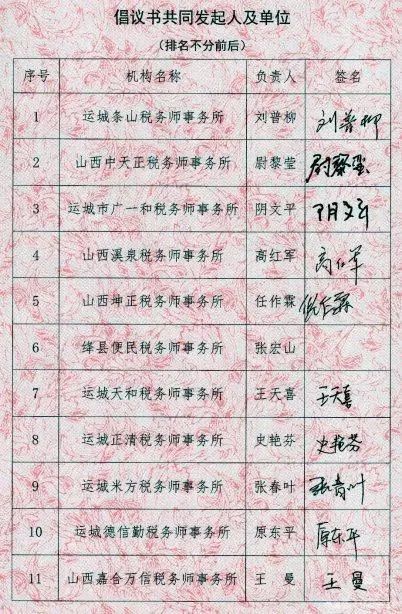 倡议书共同发起人及单位
（排名不分前后）
序号 机构名称 负责人 签名
1 运城条山税务师事务所 刘普柳 刘普柳
2 山西中天正税务师事务所 尉黎莹 尉黎莹
3 运城市广一和税务师事务所 阴文平 阴文平
4 山西溪泉税务师事务所 高红军 高红军
5 山西坤正税务师事务所 任作霖 任作霖
6 绛县便民税务师事务所 张宏山
7 运城天和税务师事务所 王天喜 王天喜
8 运城正清税务师事务所 史艳芬 史艳芬
9 运城米方税务师事务所 张春叶 张春叶
10 运城德信勤税务师事务所 原东平 原东平
11 山西嘉合万信税务师事务所 王曼 王曼